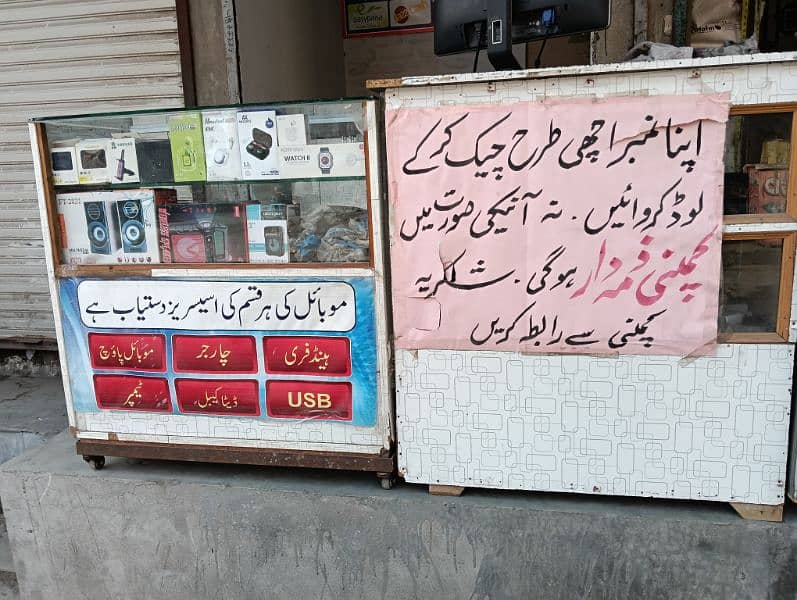 easypaisa
MA
WATCH 8
موبائل کی ہر قسم کی اسیسریز دستیاب ہے
ہینڈ فری
چارجر
موبائل پاؤچ
USB
ڈیٹا کیبل
ٹیمپر
اپنا نمبر اچھی طرح چیک کر کے
لوڈ کروائیں. نہ آنیکی صورت میں
کمپنی ذمہ دار ہوگی. شکریہ
کمپنی سے رابطہ کریں